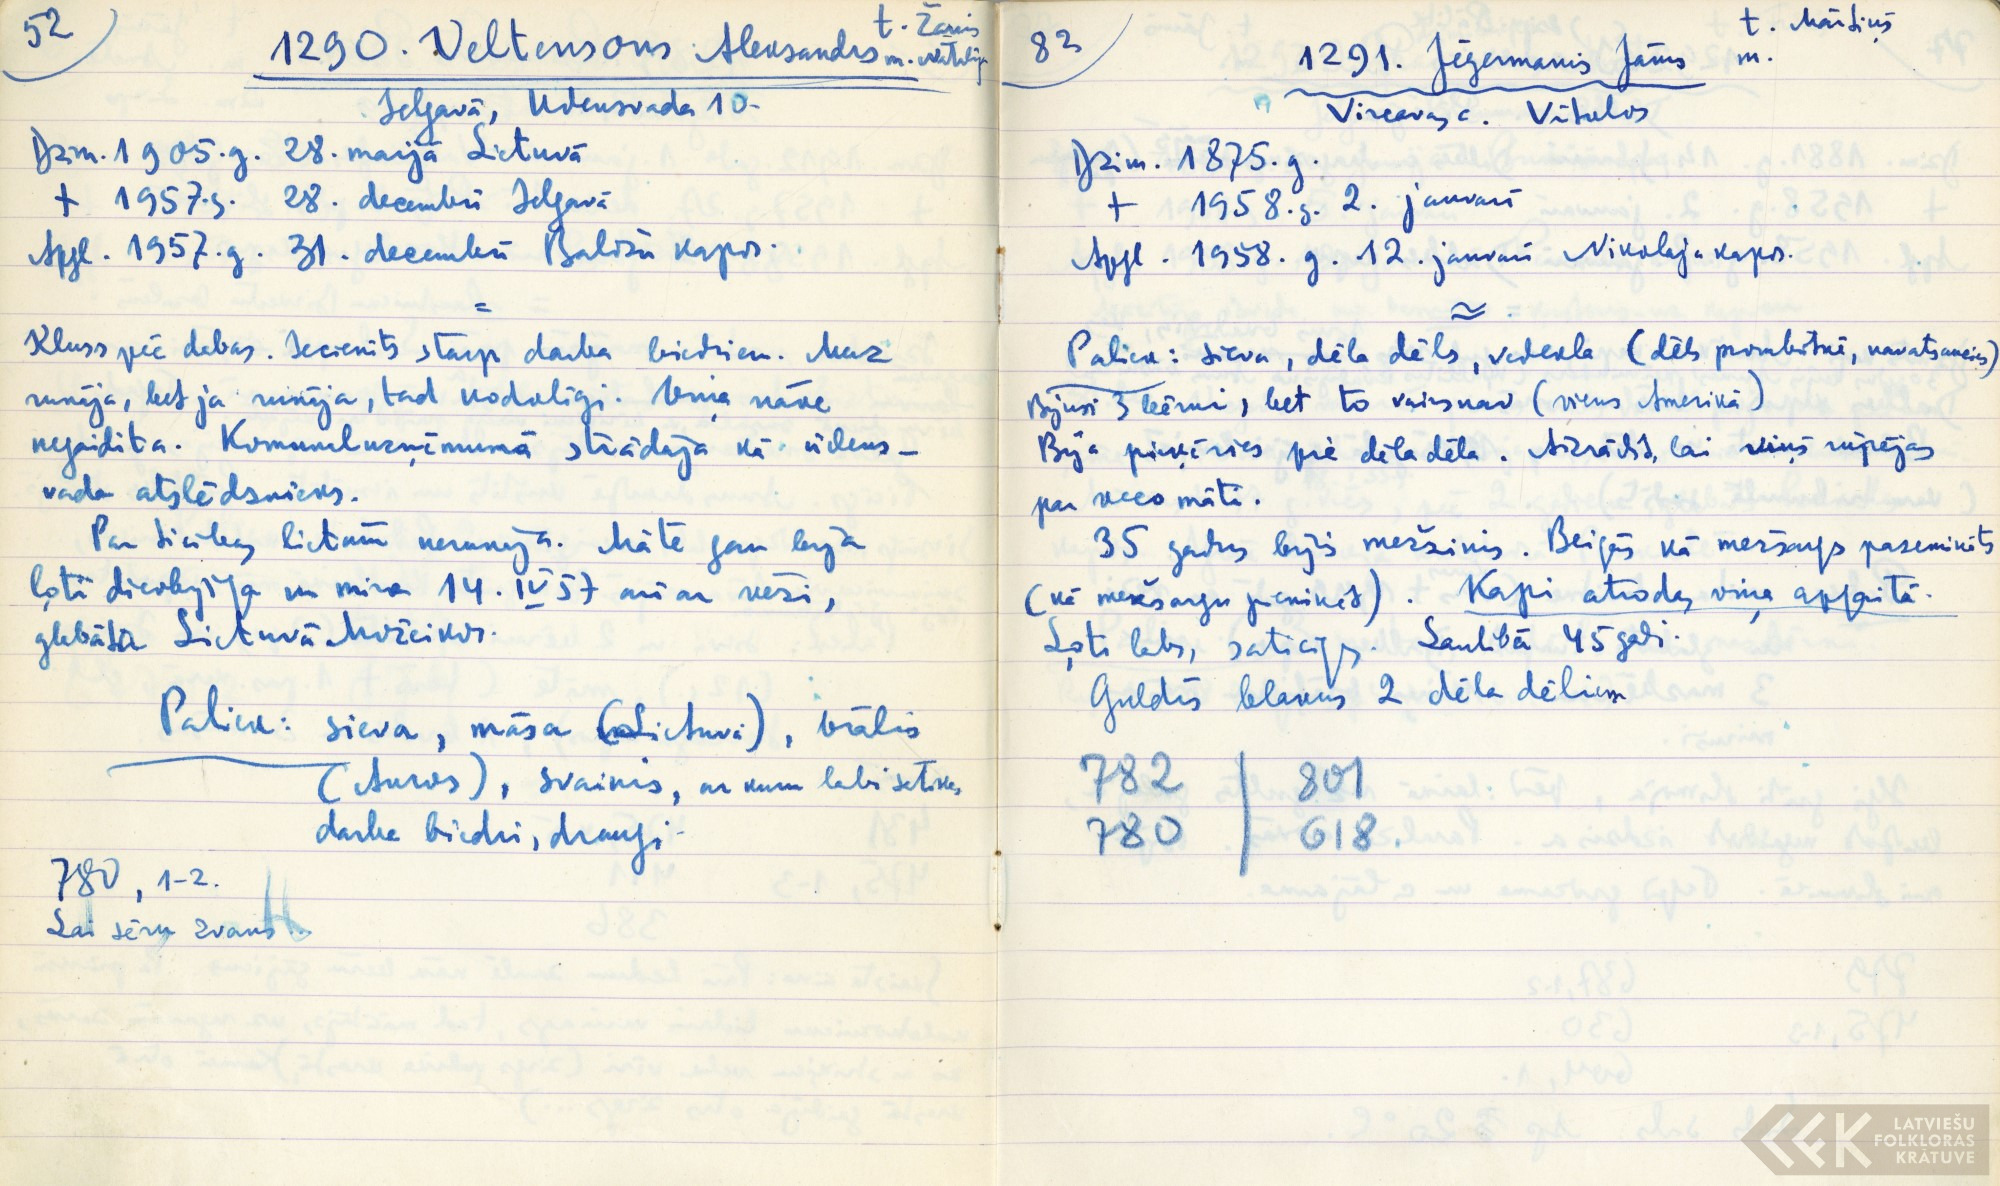 52
1290. Veltensons Aleksandrs
t. Žanis
m. Natālija
Jelgavā, Ūdensvada 10-
Dzim. 1905.g. 28. maijā Lietuvā
+ 1957.g. 28. decembrī Jelgavā
Apgl. 1957.g. 31. decembrī Baložu kapos.
=
Kluss pēc dabas. Iecienīts starp darba biedriem. Maz
runāja, bet ja runāja, tad kodolīgi. Viņa nāve
negaidīta. Komunāluzņēmumā strādāja kā ūdens-
vada atslēdznieks.
Par ticības lietām nerunāja. Māte gan bija
ļoti dievbijīga un mira 14. IV 57 arī ar vēzi,
glabāta Lietuvā Možeikos.
Paliek: sieva, māsa (Lietuvā), brālis
(Auros), svainis, ar kuru labi satika,
darba biedri, draugi-
780, 1-2.
Lai sēru zvans...
82
1291. Jēgermanis Jānis
t. Mārtiņš
m.
Vircavas c. Vītolos
Dzim. 1875.g.
+ 1958.g. 2. janvarī
Apgl. 1958.g. 12. janvarī Nikolaja kapos.
≈
Paliek: sieva, dēla dēls, vedekla (dēls prombūtnē, neatsaucies)
Bijuši 3 bērni, bet to vairs nav (viens Amerikā)
Bija pieķēries pie dēladēla. Aizrādīt, lai viņš rūpējas
par veco māti.
35 gadus bijis mežzinis. Beigās kā mežsargs pazemināts
(kā mežsargu pieminēt). Kapi atrodas viņa apgaitā.
Ļoti labs, saticīgs. Laulībā 45 gadi.
Guldīs blakus 2 dēla dēliem
782 | 801
780 | 618.
LATVIEŠU
FOLKLORAS
KRĀTUVE